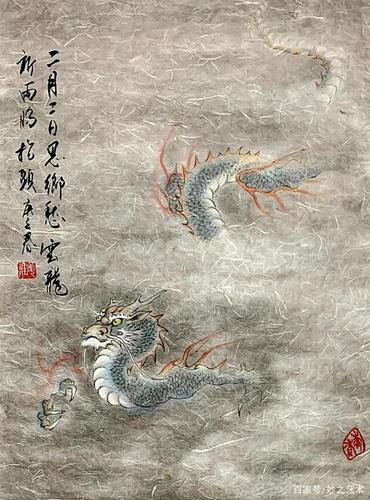 二月二日思鄉愁雲龍
新雨將抬頭庚子春
百家号/妙之艺术